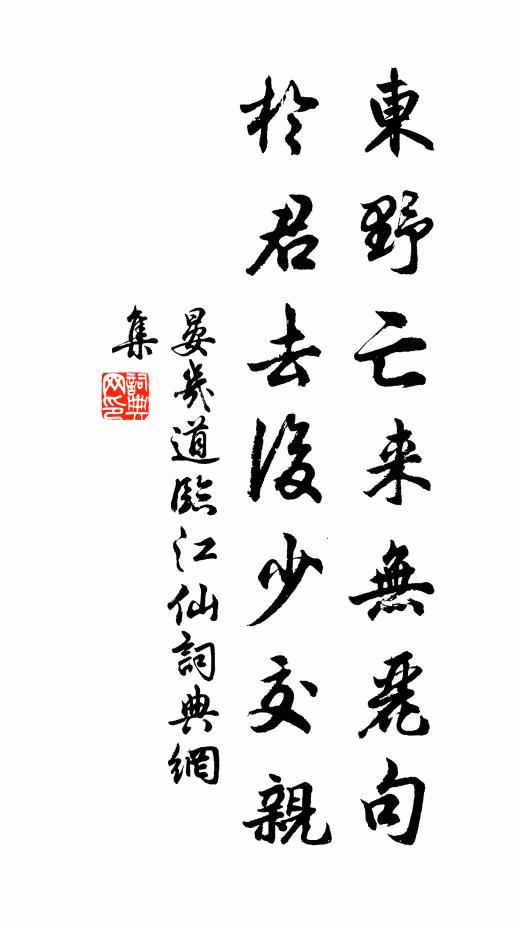 東野亡来無麗句
於君去後少交親
晏幾道臨江仙詞典網
集
詞典
网印